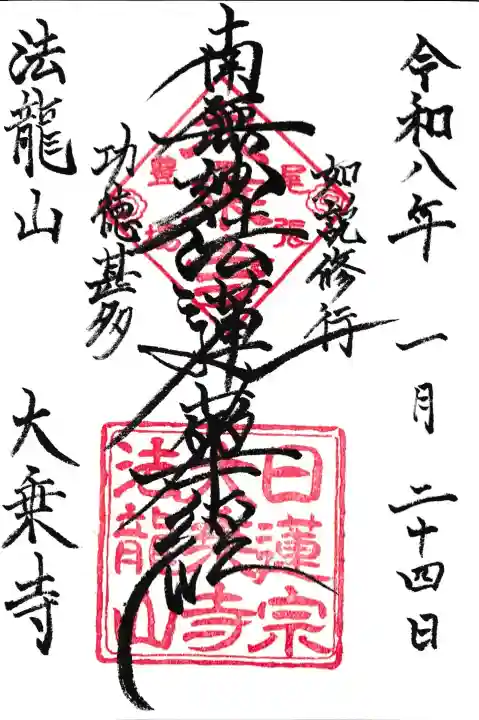 令和八年 一月 二十四日
如説修行
南無妙法蓮華経
功徳甚多
法龍山 大乗寺
尾張
豊場
日蓮宗
大乗寺
法龍山